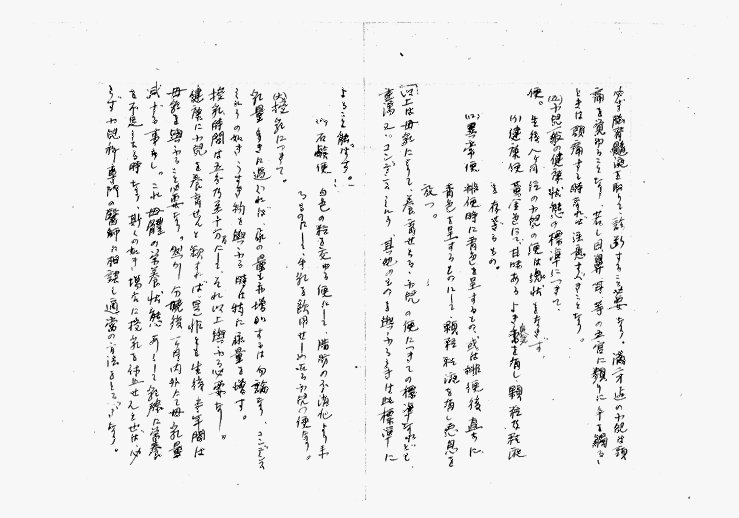 必ず脳脊髄液を取りて、診断すること必要なり、満一才迄の小児は頭
痛を覚ゆることなく、若し目鼻耳等の五官に頻りに手を觸るゝ
ときは頭痛する時なれば注意すべきことなり。
(五)小児輕の健康状態の標準につきて、
便。生後八ヶ月位の小児の便は傷状をなさず、
(1)健康便 黄金色にて、甘味あるよき香を有し顆粒な粘液
を存ざるもの。
(2)異常便 排便時に青色を呈するもの、或は排便後直ちに
青色を呈するものにして、顆粒粘液を有し悪臭を
放つ。
「以上は母乳によりて、養育せらるゝ小児の便につきての標準なれども、
重湯又、コンデンスミルク、其他のものを與ふるときは此標準に
よること能はず。」
(3)石鹸便 白色の粒を交ゆる便にして、脂肪の不消化より来
るものにして、牛乳を飲用せしめ居る小児の便なり。
(六)授乳につきて。
乳量多きに過ぐれば、尿の量も亦増加するは勿論なり、コンデンス
ミルクの如き、うすき物を與ふる時は特に尿量を増す。
授乳時間は五分乃至十分にして、それ以上與ふる必要なし。
健康に小児を養育せんと欲すれば、是非とも生後半年間は
母乳を與ふること必要なり。然し、分娩後一ヶ月内外にて母乳量
減ずる事あり。これ母體の栄養状態あしくして乳腺に栄養
を不足し来る時なり、斯くの如き場合に授乳を休止せんとせば、必
らず小児科専門の醫師に相談し適当の方法をとるべきなり。